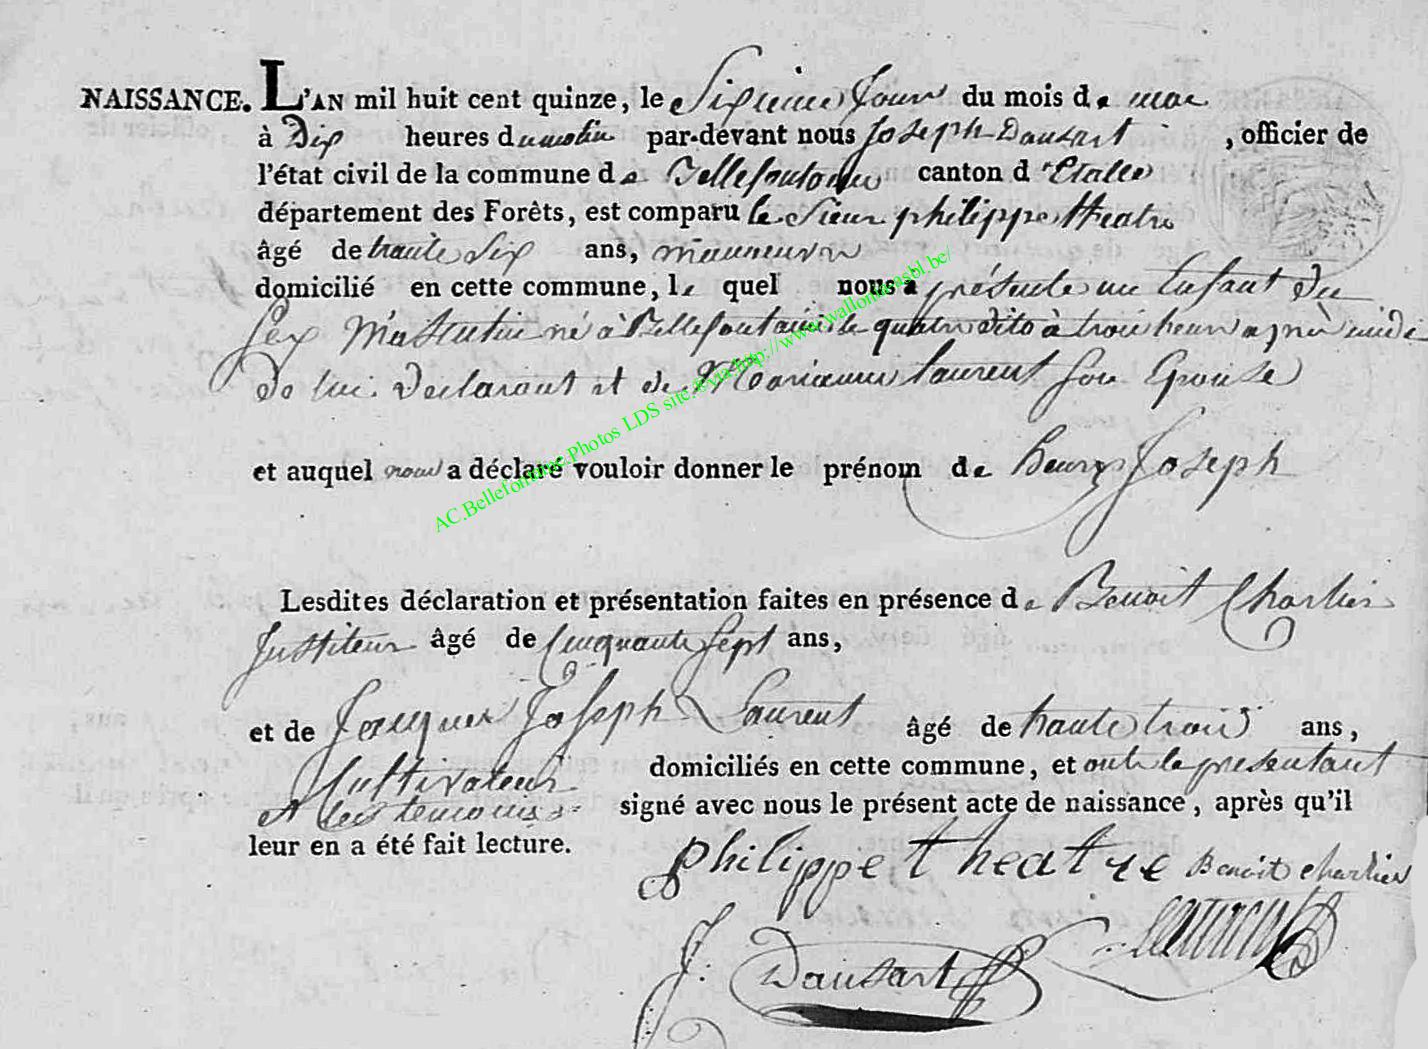 NAISSANCE. L'AN mil huit cent quinze, le Sixieme Jour du mois de mae
à Dix heures dumatin par-devant nous Joseph Dausart , officier de
l'état civil de la commune de Bellefontaine canton d'Etalle
département des Forêts, est comparu le Sieur philippe theatre
âgé de trante Six ans, maneuvre
domicilié en cette commune, le quel nous a présente un Enfant du
Sex Masculin né à Bellefontaine le quatre dito à trois heures apres midi
de lui declarant et de Marianne laurent son Epouse
et auquel nous a déclaré vouloir donner le prénom de henry Joseph
Lesdites déclaration et présentation faites en présence de Benoit Charlier
Justiteur âgé de Cinquante Sept ans,
et de Jacques Joseph Laurent âgé de trante trois ans,
Cultivateur domiciliés en cette commune, et outre le présentant
et les temoins signé avec nous le présent acte de naissance, après qu'il
leur en a été fait lecture.
philippe theatre Benoit charlier
J. Dausart laurent
AC.Bellefontaine-Photos LDS site,®via:http://www.wallonia-asbl.be/